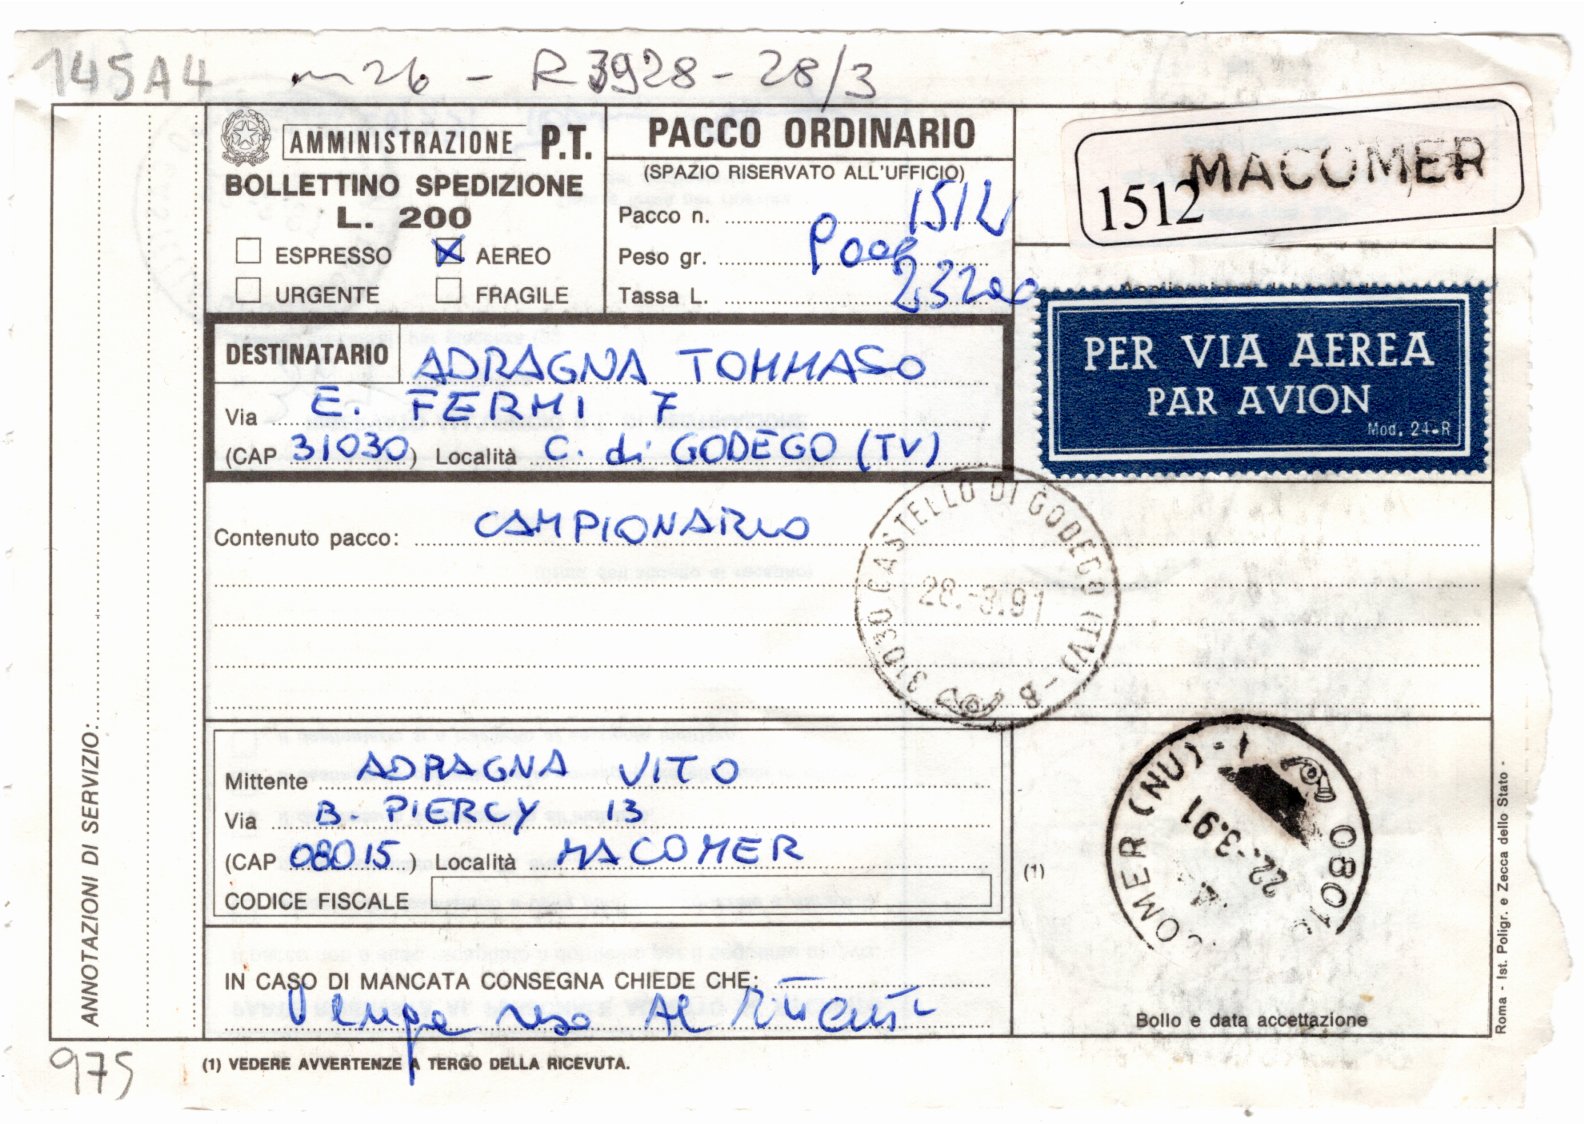 145A4 m 26 - R 3928 - 28/3
AMMINISTRAZIONE P.T.
BOLLETTINO SPEDIZIONE
L. 200
ESPRESSO AEREO
URGENTE FRAGILE
PACCO ORDINARIO
(SPAZIO RISERVATO ALL'UFFICIO)
Pacco n. 1512
Peso gr.
Tassa L. 23200
1512 MACOMER
PER VIA AEREA
PAR AVION
Mod. 24-R
DESTINATARIO ADRAGNA TOMMASO
Via E. FERMI 7
(CAP 31030) Località C. di GODEGO (TV)
Contenuto pacco: CAMPIONARIO
31030 CASTELLO DI GODEGO (TV) - B
28.-3.91
ANNOTAZIONI DI SERVIZIO:
Mittente ADRAGNA VITO
Via B. PIERCY 13
(CAP 08015) Località MACOMER
CODICE FISCALE
(1)
22.-3.91
IN CASO DI MANCATA CONSEGNA CHIEDE CHE:
Venga reso Al Mittente
Bollo e data accettazione
Roma - Ist. Poligr. e Zecca dello Stato -
975
(1) VEDERE AVVERTENZE A TERGO DELLA RICEVUTA.